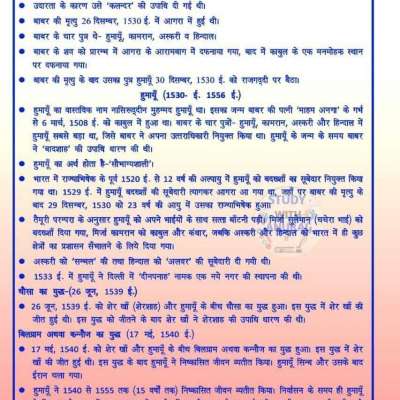 उदारता के कारण उसे 'कलन्दर' की उपाधि दी गई थी।
बाबर की मृत्यु 26 दिसम्बर, 1530 ई. में आगरा में हुई थी।
बाबर के चार पुत्र थे- हुमायूँ, कामरान, अस्करी व हिन्दाल।
बाबर के शव को प्रारम्भ में आगरा के आरामबाग में दफनाया गया, बाद में काबुल के एक मनमोहक स्थान
पर दफनाया गया।
बाबर की मृत्यु के बाद उसका पुत्र हुमायूँ 30 दिसम्बर, 1530 ई. को राजगद्दी पर बैठा।
हुमायूँ (1530- ई. 1556 ई.)
हुमायूँ का वास्तविक नाम नासिरूद्दीन मुहम्मद हुमायूँ था। इसका जन्म बाबर की पत्नी 'माहम अनगा' के गर्भ
से 6 मार्च, 1508 ई. को काबुल में हुआ था। बाबर के चार पुत्रों- हुमायूँ, कामरान, अस्करी और हिन्दाल में
हुमायूँ सबसे बड़ा था, जिसे बाबर ने अपना उत्तराधिकारी नियुक्त किया था। हुमायूँ के जन्म के समय बाबर
ने 'बादशाह' की उपाधि धारण की थी।
हुमायूँ का अर्थ होता है-'सौभाग्यशाली'।
भारत में राज्याभिषेक के पूर्व 1520 ई. से 12 वर्ष की अल्पायु में हुमायूँ को बदख्शाँ का सूबेदार नियुक्त किया
गया था। 1529 ई. में हुमायूँ बदख्शाँ की सूबेदारी त्यागकर आगरा आ गया था, जहाँ पर बाबर की मृत्यु के
बाद 29 दिसम्बर, 1530 को 23 वर्ष की आयु में उसका राज्याभिषेक हुआ।
तैमूरी परम्परा के अनुसार हुमायूँ को अपने भाईयों के साथ सत्ता बाँटनी पड़ी। मिर्जा सुलेमान (चचेरा भाई) को
बदख्शाँ दिया गया, मिर्जा कामरान को काबुल और कंधार, जबकि अस्करी और हिन्दाल को भारत में ही कुछ
क्षेत्रों का प्रशासन सँभालने के लिये दिया गया।
अस्करी को 'सम्भल' की तथा हिन्दाल को 'अलवर' की सूबेदारी दी गयी थी।
1533 ई. में हुमायूँ ने दिल्ली में 'दीनपनाह' नामक एक नये नगर की स्थापना की थी।
चौसा का युद्ध-(26 जून, 1539 ई.)
26 जून, 1539 ई. को शेर खाँ (शेरशाह) और हुमायूँ के बीच चौसा का युद्ध हुआ। इस युद्ध में शेर खाँ की
जीत हुई थी। इस युद्ध को जीतने के बाद शेर खाँ ने शेरशाह की उपाधि धारण की थी।
बिलग्राम अथवा कन्नौज का युद्ध (17 मई, 1540 ई.)
17 मई, 1540 ई. को शेर खाँ और हुमायूँ के बीच बिलग्राम अथवा कन्नौज का युद्ध हुआ। इस युद्ध में शेर
खाँ की जीत हुई थी। इस युद्ध के बाद हुमायूँ ने निष्कासित जीवन व्यतीत किया। हुमायूँ सिन्ध और उसके बाद
ईरान चला गया।
हुमायूँ ने 1540 से 1555 तक (15 वर्षों तक) निष्कासित जीवन व्यतीत किया। निर्वासन के समय ही हुमायूँ
STUDY
WITH